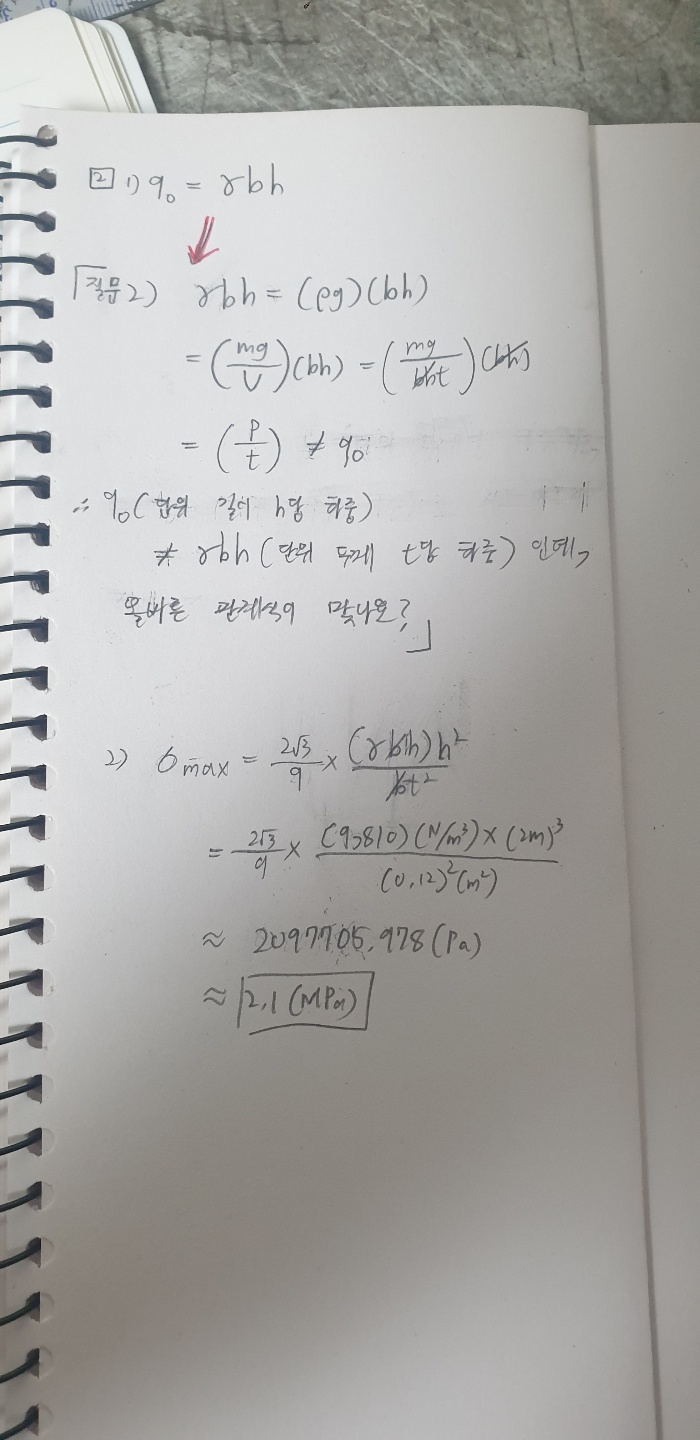 [2] 1) q₀ = γbh
「질문2) γbh = (ρg)(bh)
= (mg/V)(bh) = (mg/bht)(bh)
= (P/t) ≠ q₀
∴ q₀(단위 길이 h당 하중)
≠ γbh(단위 두께 t당 하중) 인데,
올바른 관계식이 맞나요?」
2) σmax = 2√3/9 × (γbh)h²/bt²
= 2√3/9 × (9,810)(N/m³)×(2m)³/(0.12)²(m²)
≈ 2097705.978(Pa)
≈ 2.1(MPa)